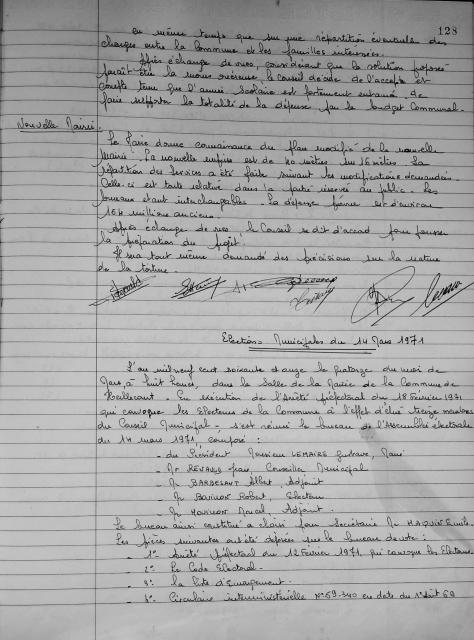 128
en même temps que sur une répartition éventuelle des
charges entre la Commune et les familles intéressées.
Après échange de vues, considérant que la solution proposée
paraît être la moins onéreuse, le Conseil décide de l'accepter et
compte tenu que l'année scolaire est fortement entamée de
faire supporter la totalité de la dépense par le budget Communal.
Nouvelle Mairie
Le Maire donne connaissance du plan modifié de la nouvelle
Mairie. La nouvelle emprise est de 20 mètres sur 15 mètres. La
répartition des services a été faite suivant les modifications demandées.
Celle-ci est toute relative dans la partie réservée au public. Les
bureaux étant interchangeables. La dépense prévue est d'environ
millions anciens.
Après échange de vues, le Conseil se dit d'accord pour
la préparation du projet.
Il sera tout même demandé des précisions sur la nature
de la toiture.
Elections Municipales du 14 Mars 1971
L'an mil neuf cent soixante et onze le quatorze du mois de
Mars, à huit heures, dans la Salle de la Mairie de la Commune de
En exécution de l'Arrêté préfectoral du 18 Février 1971
qui convoque les Electeurs de la Commune à l'effet d'élire treize membres
du Conseil Municipal - s'est réuni le bureau de l'Assemblée électorale
du 14 mars 1971, composé :
- du Président Monsieur LEMAIRE Gustave, Maire
- Mr RENAULD Jean, Conseiller Municipal
- Mr Albert, Adjoint
- Mr Robert, Electeur
- Mr Marcel, Adjoint.
Le bureau ainsi constitué a choisi pour Secrétaire Mr
Les pièces suivantes ont été déposées sur le bureau de vote :
- 1° Arrêté préfectoral du 12 Février 1971, qui convoque les Electeurs
- 2° Le Code Electoral -
- 3° La liste d'émargement -
- 4° Circulaire interministérielle N° 69-340 en date du 1° Août 69